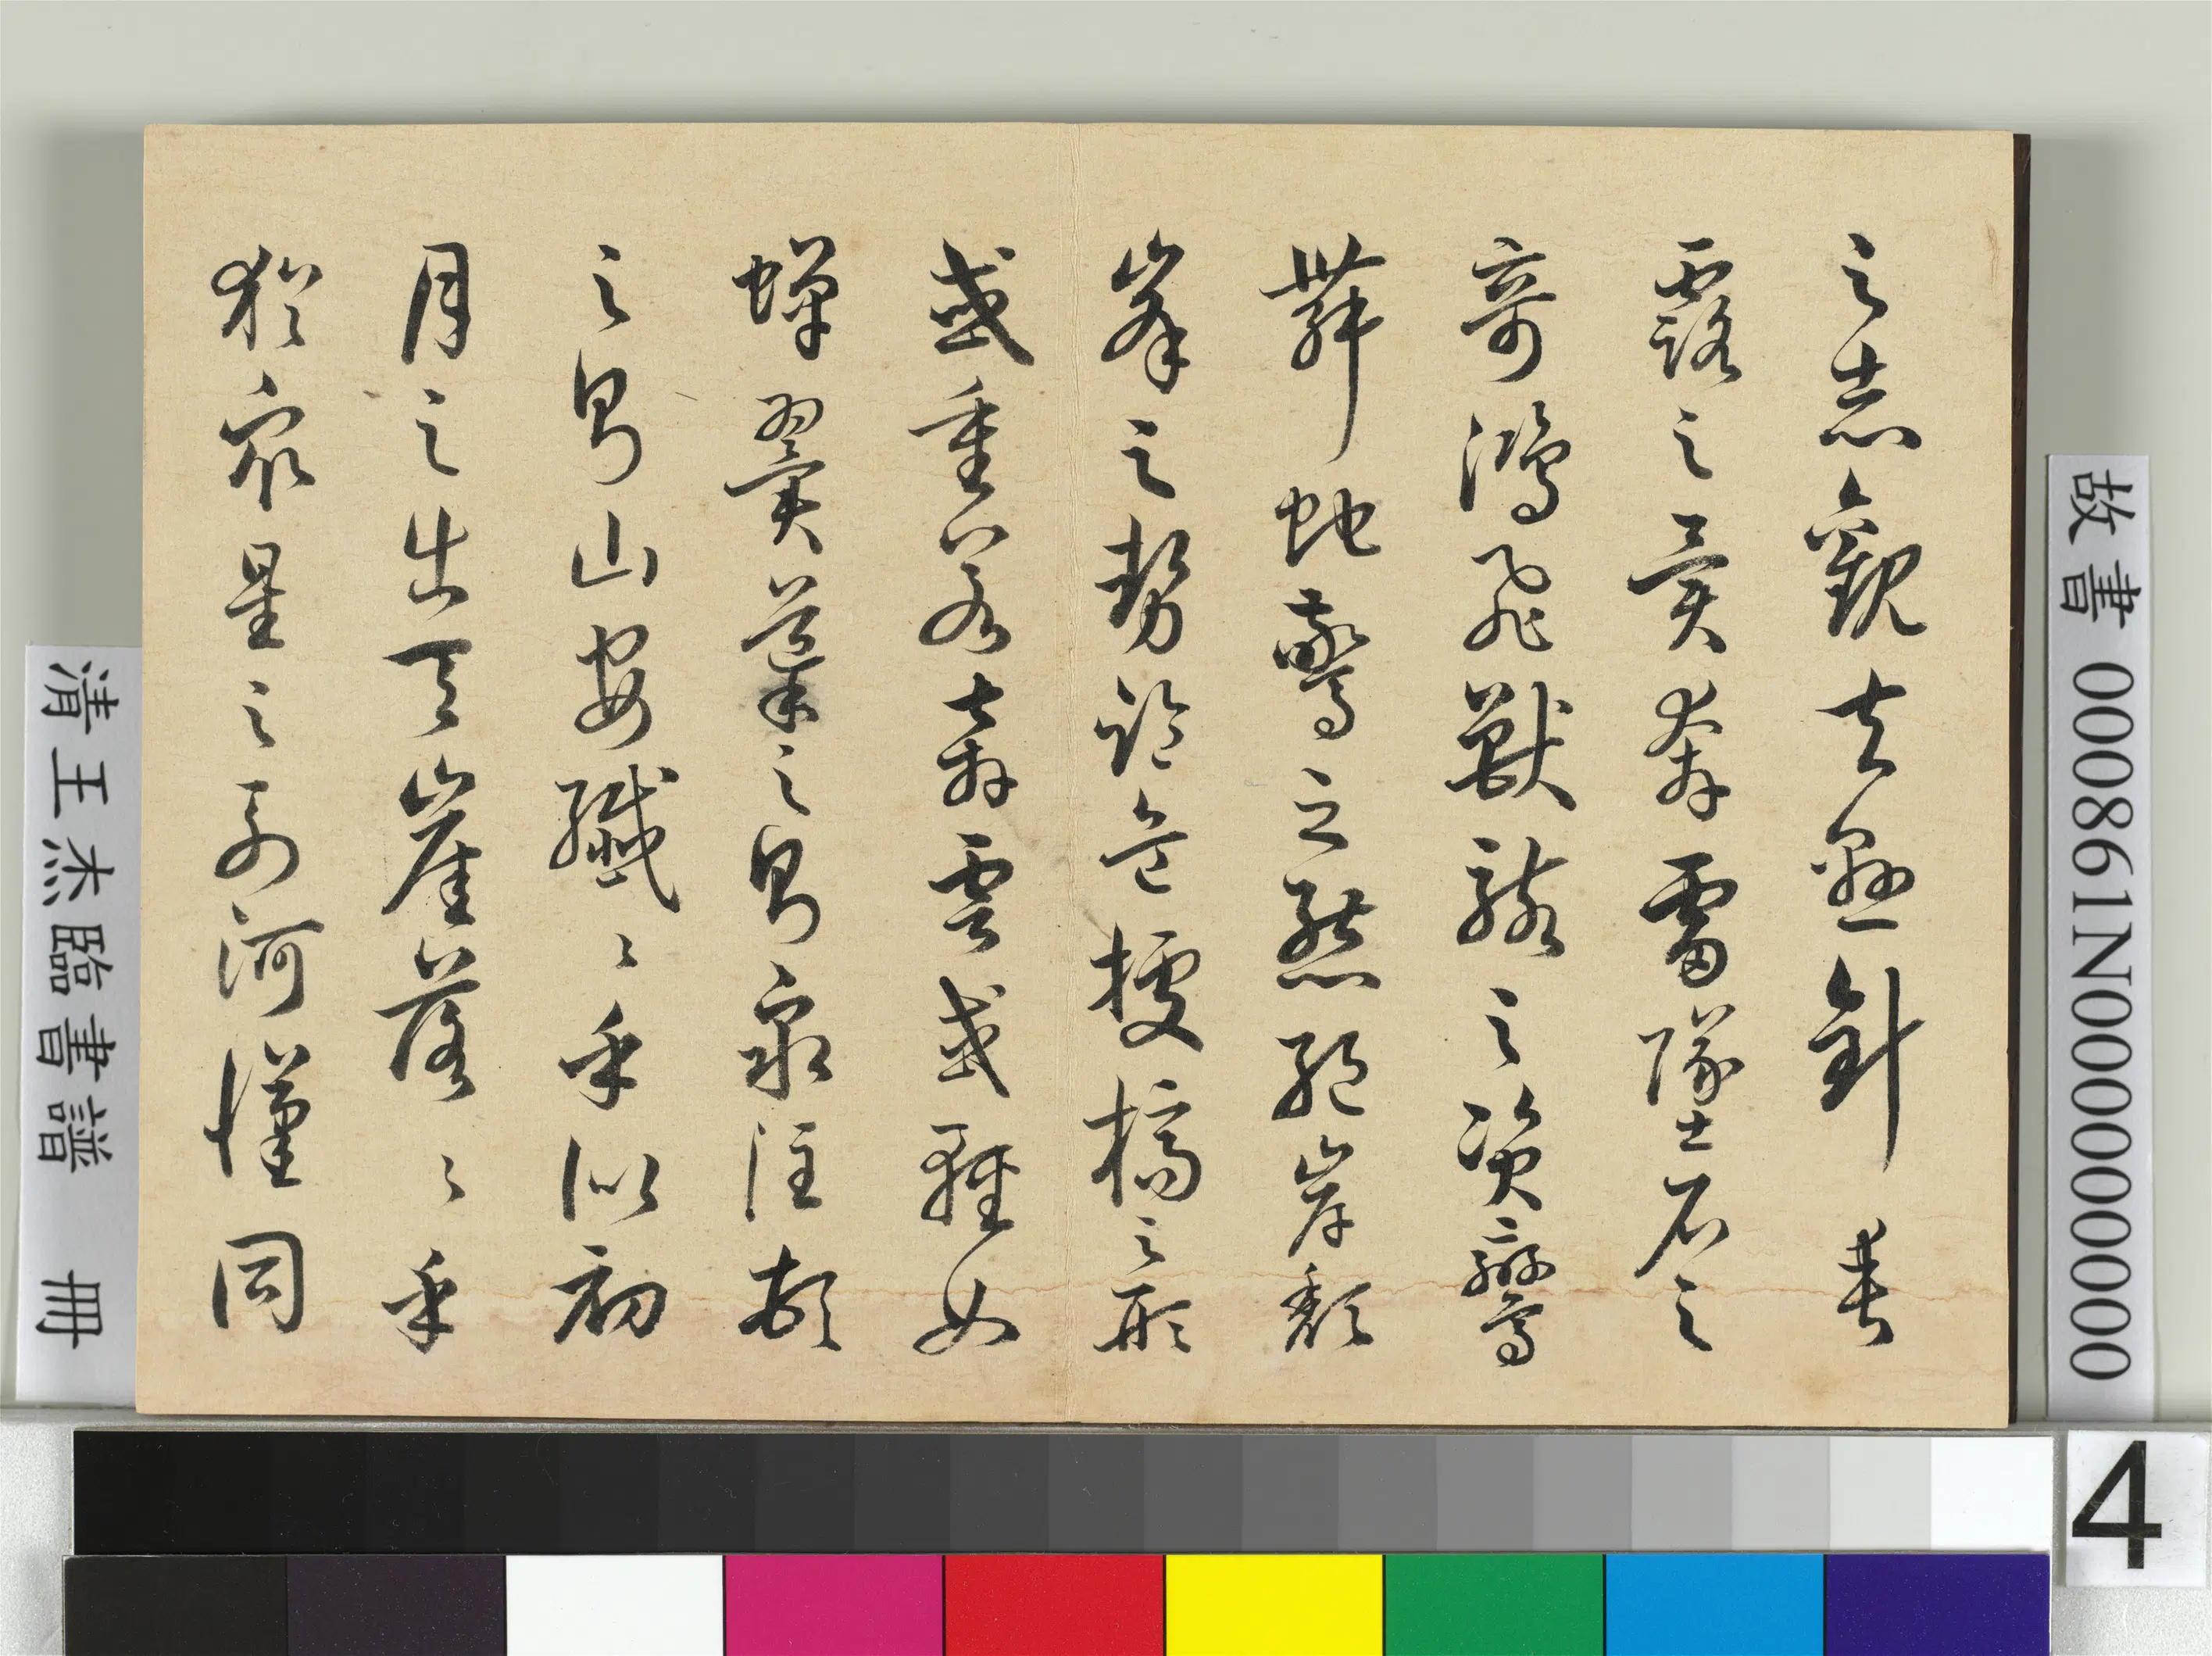 之志觀夫懸針垂
露之異奔雷墜石之
奇鴻飛獸駭之資鸞
舞蛇驚之態絕岸頹
峯之勢臨危據槁之形
或重若崩雲或輕如
蟬翼導之則泉注頓
之則山安纖〻乎似初
月之出天崖落〻乎
猶眾星之列河漢同
故書 000861N000000000
清王杰臨書書譜 冊
4